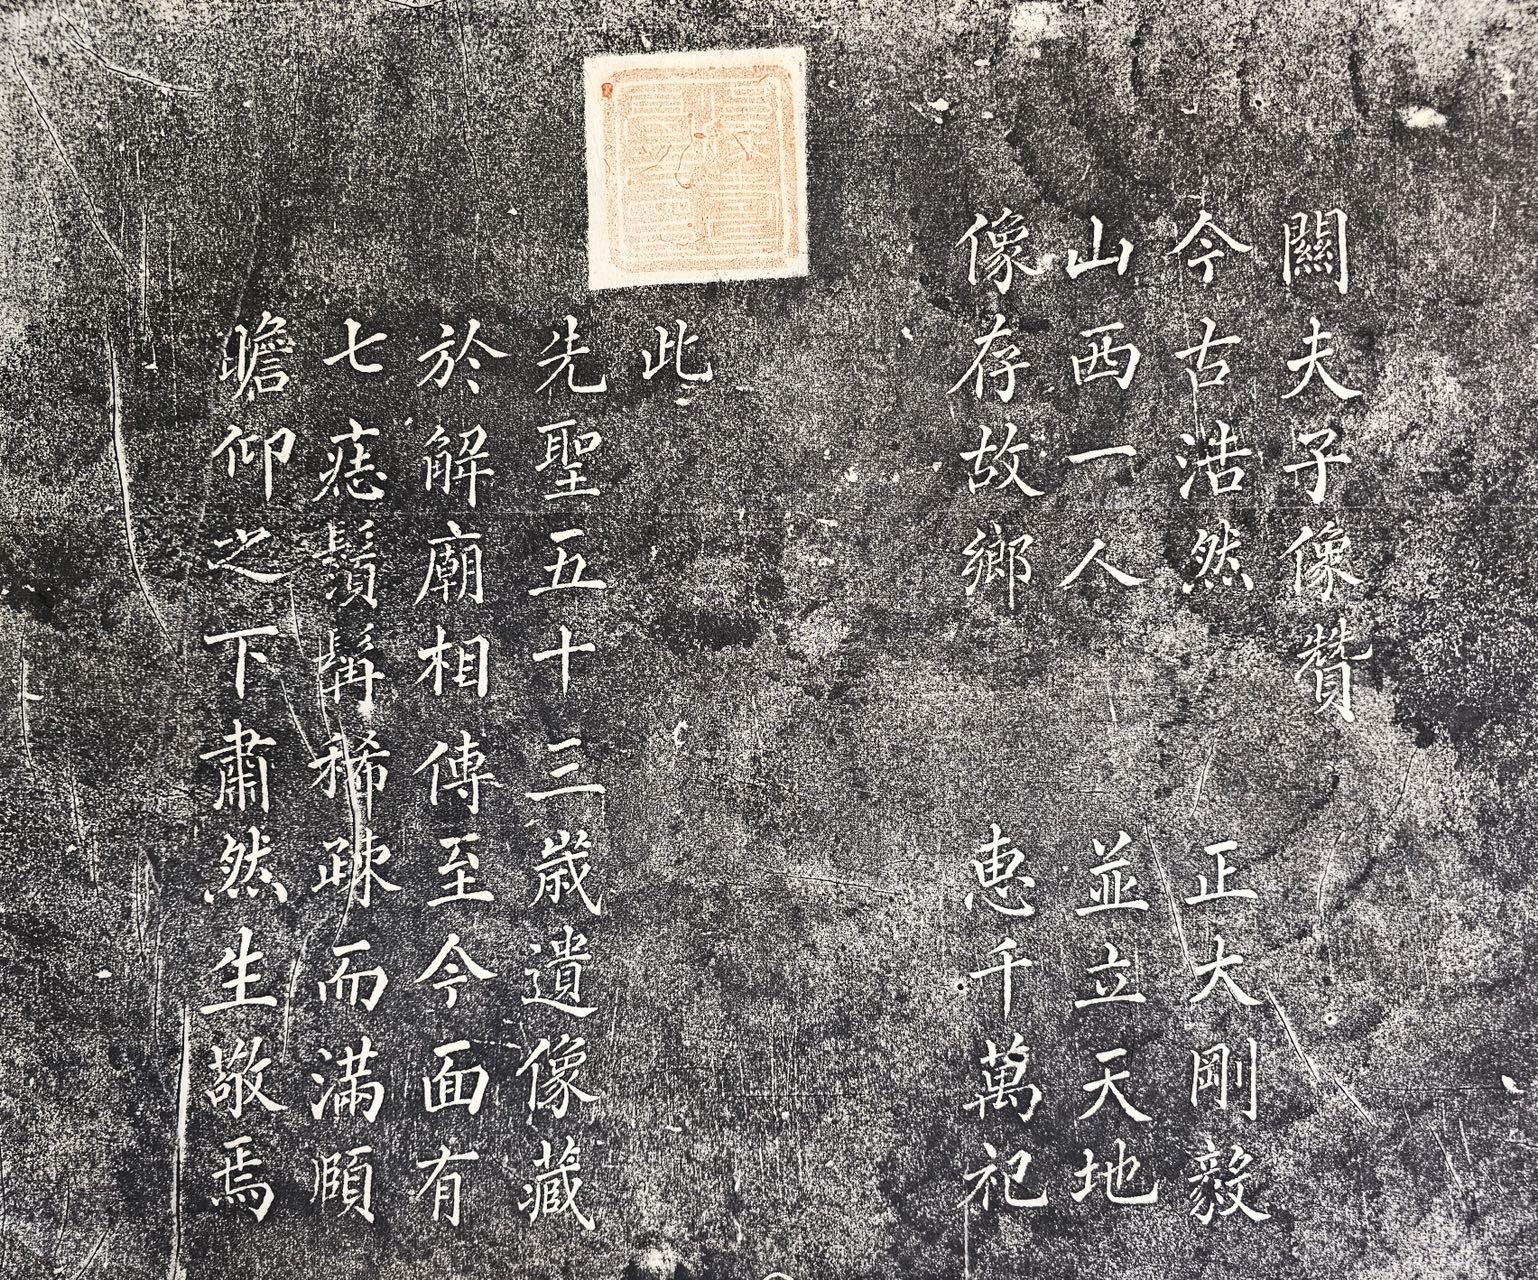 關夫子像贊
今古浩然　正大剛毅
山西一人　並立天地
像存故鄉　惠千萬祀
此
先聖五十三歲遺像藏
於解廟相傳至今面有
七痣鬚髯稀疎而滿頤
瞻仰之下肅然生敬焉